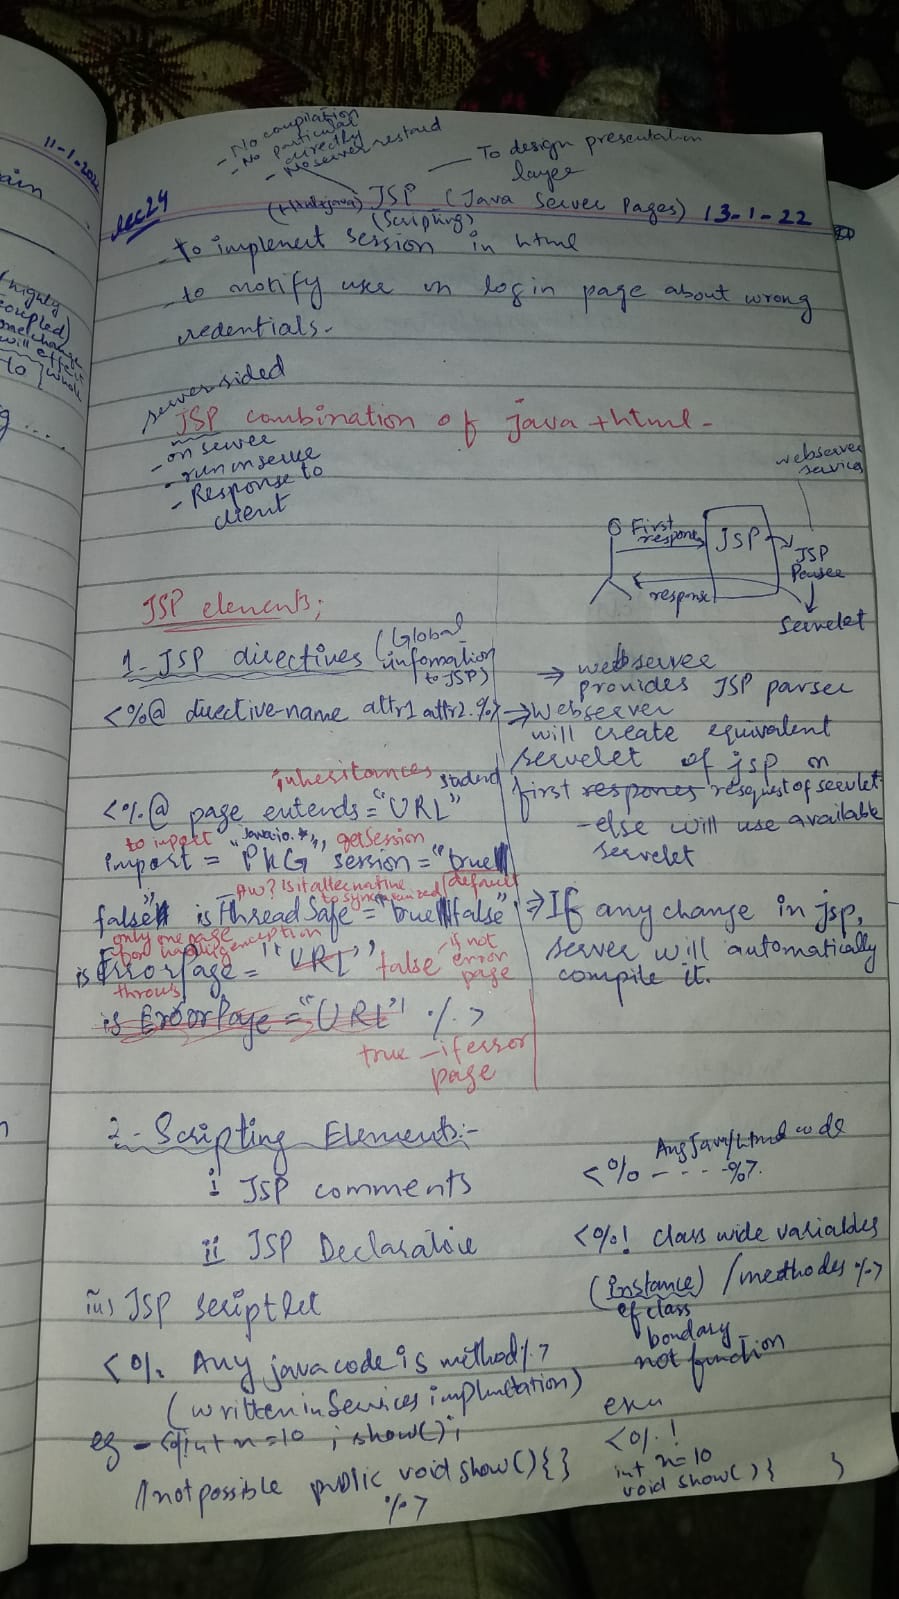 11-1-202
ain
(highly
coupled)
one change
will effect
to whole
- No compilation
- No particular
directly
- No server restard
To design presentation
layer
lec24
(Html+java) JSP (Java Server Pages) 13-1-22
(Scripting)
- to implement session in html
- to notify use on login page about wrong
credentials.
server sided
JSP combination of java + html -
- on server
- run on server
- Response to
client
webserver
service
First
respones
JSP
JSP
Parser
response
Servelet
JSP elements;
1- JSP directives (Global
infomation
to JSP)
<%@ directive-name attr1 attr2. %>
inheritances
<%@ page extends = "URL"
to import "java.io.*", getSession
import = "PKG" session = "true//
default
false" isThreadSafe = "true//false"
only one page
for handling exception
isErrorPage = "URL" false - is not
error
page
throws
is ErrorPage = "URL" %>
true - if error
page
⇒ webserver
provides JSP parser
⇒ Webserver
will create equivalent
servelet of jsp on
first respones resquest of servlet
- else will use available
servelet
⇒ If any change in jsp,
server will automatically
compile it.
2- Scripting Elements:-
i JSP comments
<% Any Java/html code
- - - - %>.
ii JSP Declaratoie
<%! class wide variables
(instance) /methodes %>
of class
bondary -
not function
iii) JSP scriptlet
<% Any java code is method %>
(written in Services implmentation)
eg - <% int n=10 ; show();
//not possible public void show(){}
%>
<%!
int n=10
void show(){ }